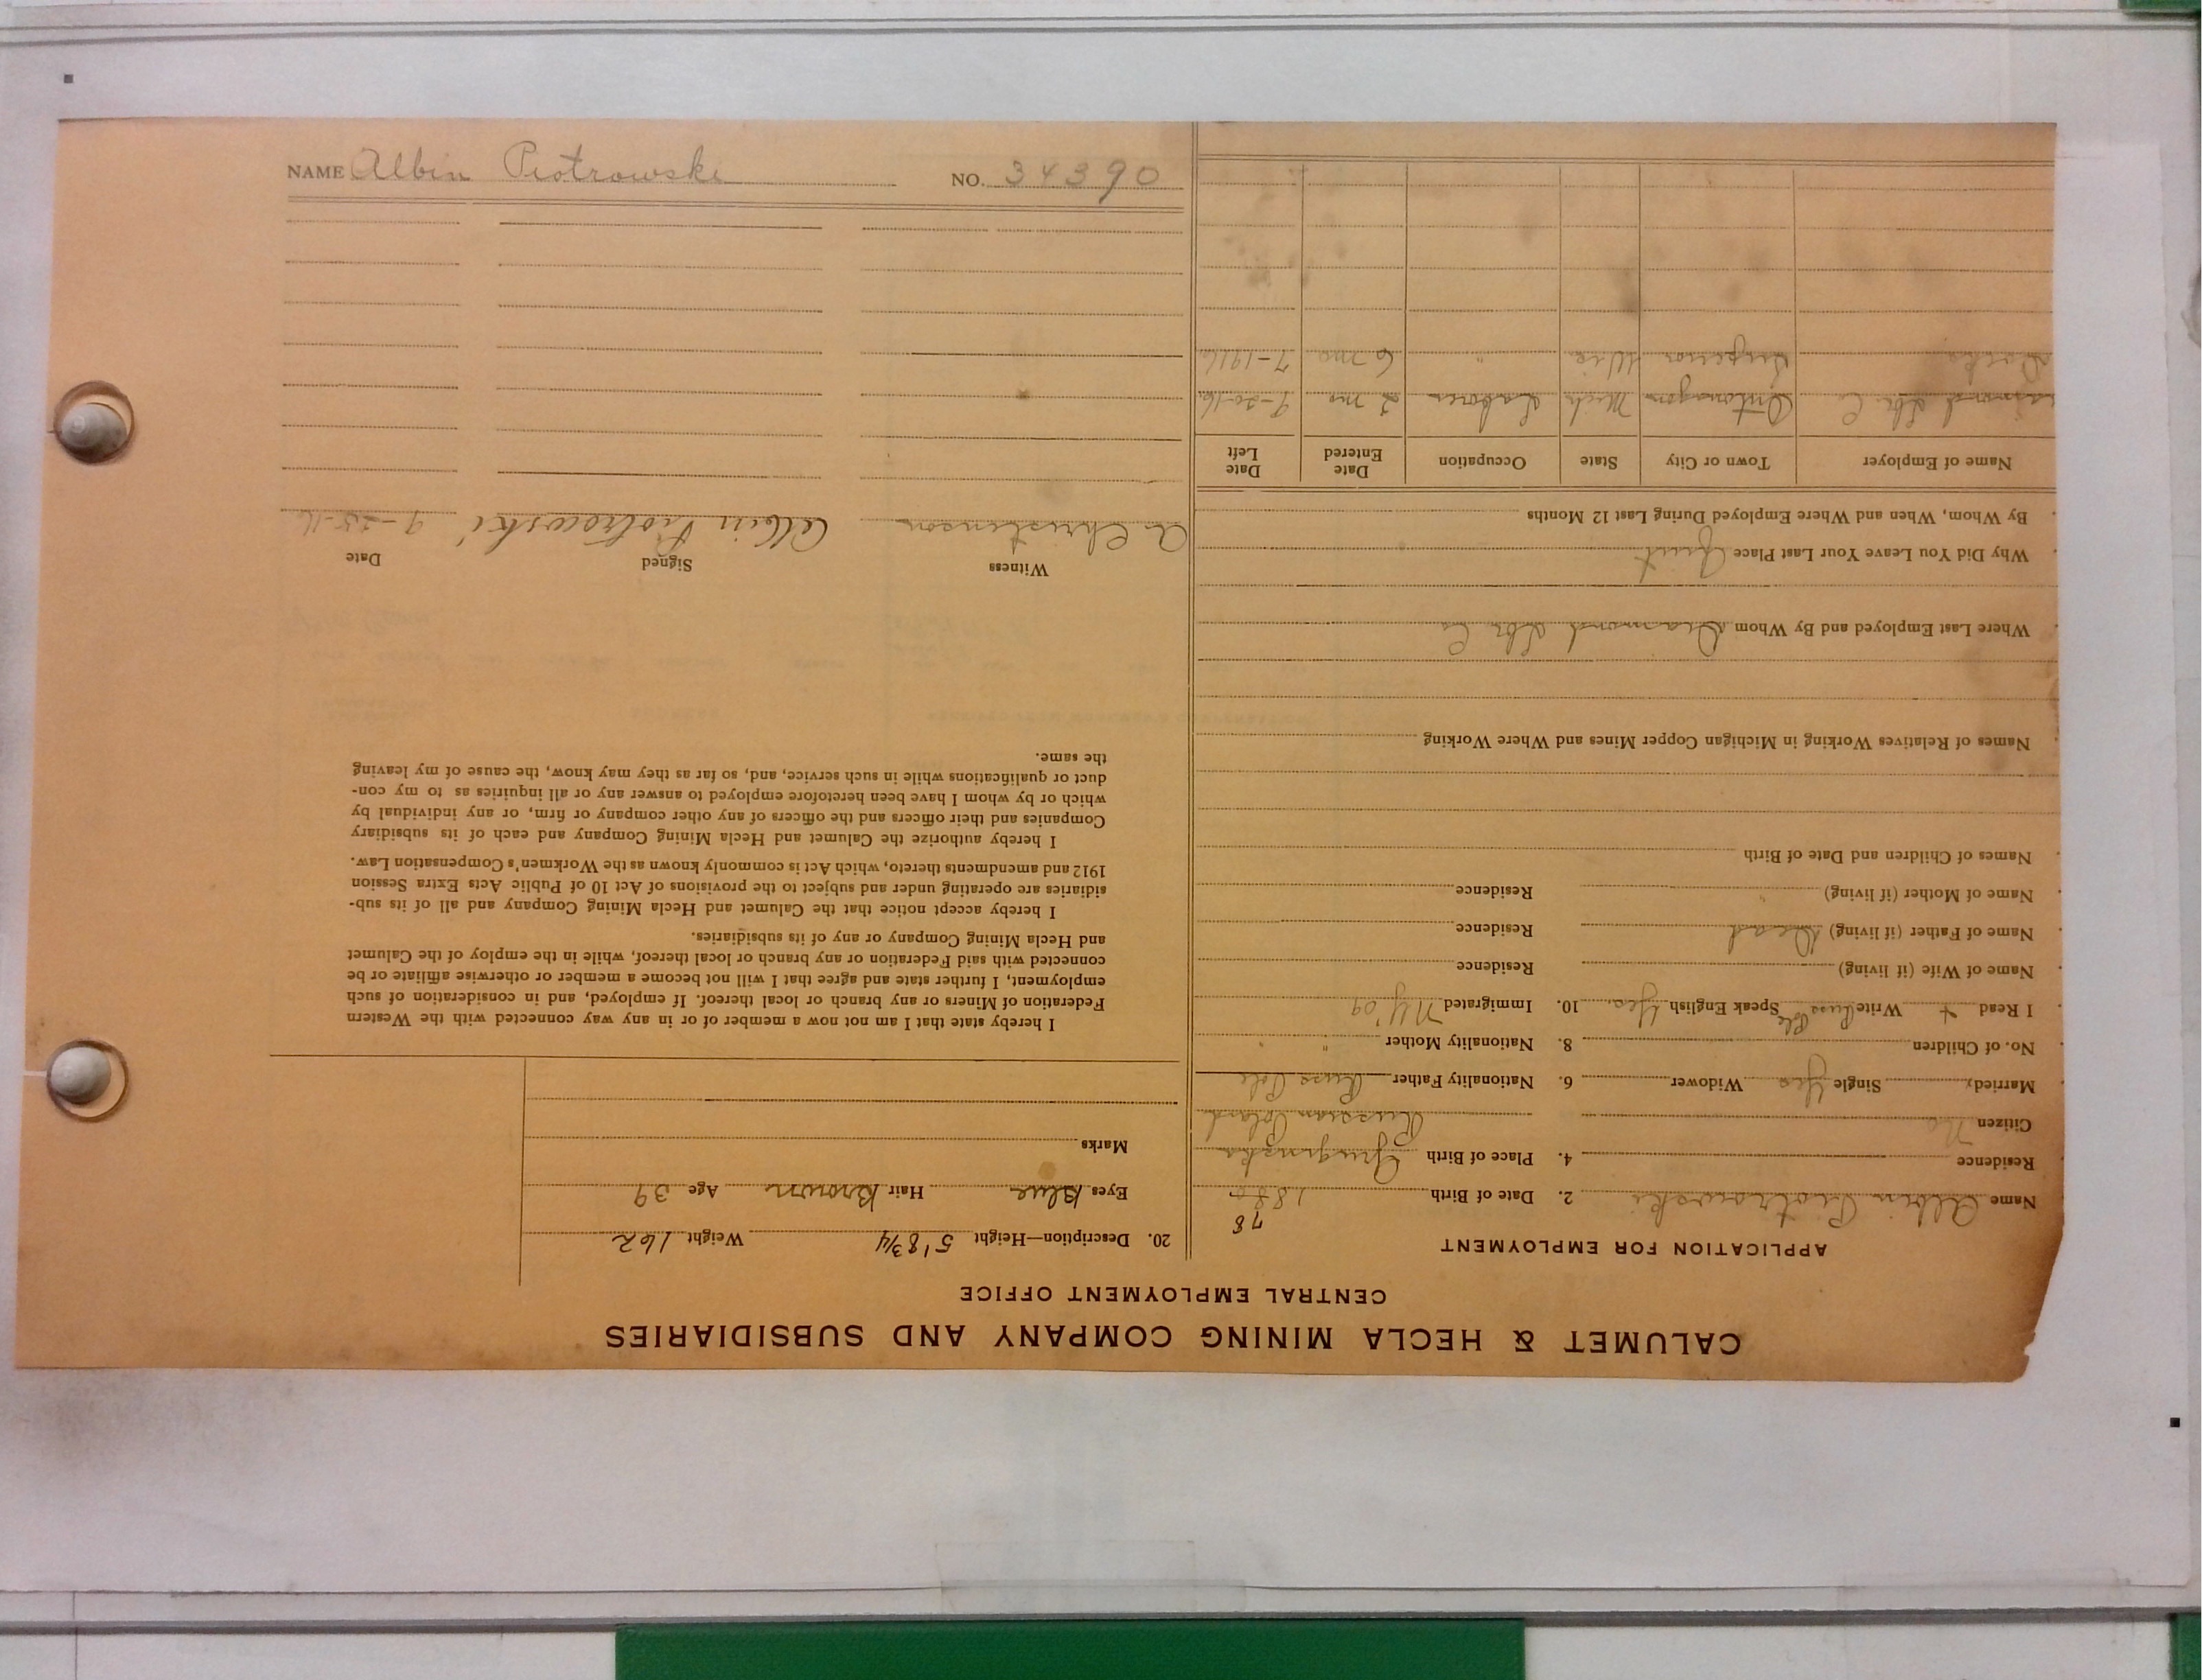 NAME Albin Piotrowski NO. 34390
CALUMET & HECLA MINING COMPANY AND SUBSIDIARIES
CENTRAL EMPLOYMENT OFFICE
APPLICATION FOR EMPLOYMENT
Name Albin Piotrowski 2. Date of Birth 1880 78
Residence 4. Place of Birth
Citizen No Russian Poland
Married, Single Yes Widower 6. Nationality Father Russ Pole
No. of Children 8. Nationality Mother " "
I Read + Write Russ Pole Speak English Yes. 10. Immigrated NY '09
Name of Wife (if living) Residence
Name of Father (if living) Dead Residence
Name of Mother (if living) " Residence
Names of Children and Date of Birth
Names of Relatives Working in Michigan Copper Mines and Where Working
Where Last Employed and By Whom Diamond Lbr Co
Why Did You Leave Your Last Place Quit
By Whom, When and Where Employed During Last 12 Months
Name of Employer Town or City State Occupation Date Entered Date Left
amond Lbr. Co Ontonagon Mich Laborer 2 mo 9-20-16
Docks Superior Wis " 6 mo 7-1916
20. Description—Height 5' 8 3/4 Weight 162
Eyes Blue Hair Brown Age 39
Marks
I hereby state that I am not now a member of or in any way connected with the Western
Federation of Miners or any branch or local thereof. If employed, and in consideration of such
employment, I further state and agree that I will not become a member or otherwise affiliate or be
connected with said Federation or any branch or local thereof, while in the employ of the Calumet
and Hecla Mining Company or any of its subsidiaries.
I hereby accept notice that the Calumet and Hecla Mining Company and all of its sub-
sidiaries are operating under and subject to the provisions of Act 10 of Public Acts Extra Session
1912 and amendments thereto, which Act is commonly known as the Workmen's Compensation Law.
I hereby authorize the Calumet and Hecla Mining Company and each of its subsidiary
Companies and their officers and the officers of any other company or firm, or any individual by
which or by whom I have been heretofore employed to answer any or all inquiries as to my con-
duct or qualifications while in such service, and, so far as they may know, the cause of my leaving
the same.
Witness Signed Date
A Christenson Albin Piotrowski 9-25-16